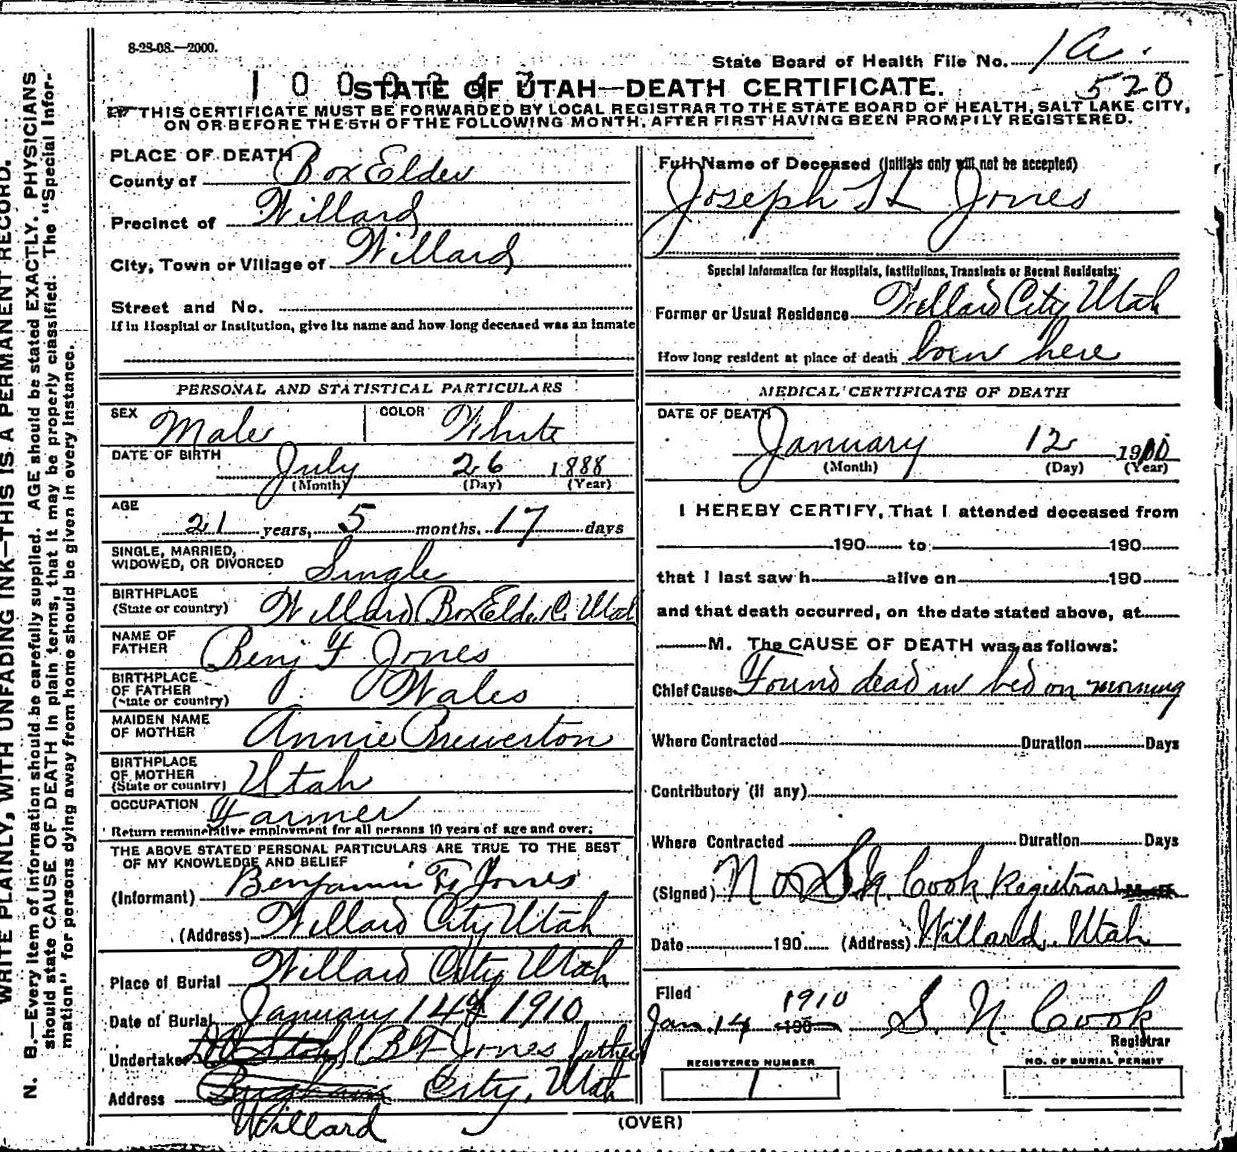 8-23-08.—2000.
State Board of Health File No. 1a.
520
STATE OF UTAH—DEATH CERTIFICATE.
THIS CERTIFICATE MUST BE FORWARDED BY LOCAL REGISTRAR TO THE STATE BOARD OF HEALTH, SALT LAKE CITY,
ON OR BEFORE THE 5TH OF THE FOLLOWING MONTH, AFTER FIRST HAVING BEEN PROMPTLY REGISTERED.
PLACE OF DEATH
County of Box Elder
Precinct of Willard
City, Town or Village of Willard
Street and No.
If in Hospital or Institution, give its name and how long deceased was an inmate
Full Name of Deceased (Initials only will not be accepted)
Joseph H Jones
Special Information for Hospitals, Institutions, Transients or Recent Residents:
Former or Usual Residence Willard City Utah
How long resident at place of death born here
PERSONAL AND STATISTICAL PARTICULARS
SEX Male COLOR White
DATE OF BIRTH
July 26 1888
(Month) (Day) (Year)
AGE
21 years, 5 months, 17 days
SINGLE, MARRIED,
WIDOWED, OR DIVORCED Single
BIRTHPLACE
(State or country) Willard Box Elder C. Utah
NAME OF
FATHER Benj F Jones
BIRTHPLACE
OF FATHER
(State or country) Wales
MAIDEN NAME
OF MOTHER Annie Brewerton
BIRTHPLACE
OF MOTHER
(State or country) Utah
OCCUPATION Farmer
Return remunerative employment for all persons 10 years of age and over.
THE ABOVE STATED PERSONAL PARTICULARS ARE TRUE TO THE BEST
OF MY KNOWLEDGE AND BELIEF
(Informant) Benjamin F. Jones
(Address) Willard City Utah
Place of Burial Willard City Utah
Date of Burial January 14th 1910
Undertaker B F Jones father
Address City, Utah
Willard
MEDICAL CERTIFICATE OF DEATH
DATE OF DEATH
January 12 1910
(Month) (Day) (Year)
I HEREBY CERTIFY, That I attended deceased from
190 to 190
that I last saw h alive on 190
and that death occurred, on the date stated above, at
M. The CAUSE OF DEATH was as follows:
Chief Cause Found dead in bed on morning
Where Contracted Duration Days
Contributory (if any)
Where Contracted Duration Days
(Signed) Cook Registrar
Date 190 (Address) Willard, Utah
Filed 1910
Jan. 14 190 S. N. Cook
Registrar
REGISTERED NUMBER NO. OF BURIAL PERMIT
1
(OVER)
WRITE PLAINLY, WITH UNFADING INK—THIS IS A PERMANENT RECORD.
N. B.—Every item of information should be carefully supplied. AGE should be stated EXACTLY. PHYSICIANS
should state CAUSE OF DEATH in plain terms, that it may be properly classified. The "Special Infor-
mation" for persons dying away from home should be given in every instance.